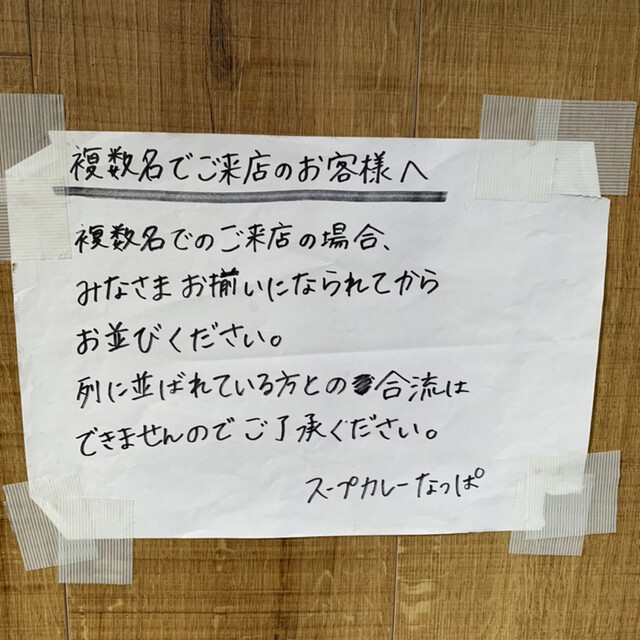 複数名でご来店のお客様へ
複数名でのご来店の場合、
みなさまお揃いになられてから
お並びください。
列に並ばれている方との合流は
できませんのでご了承ください。
スープカレーなっぱ